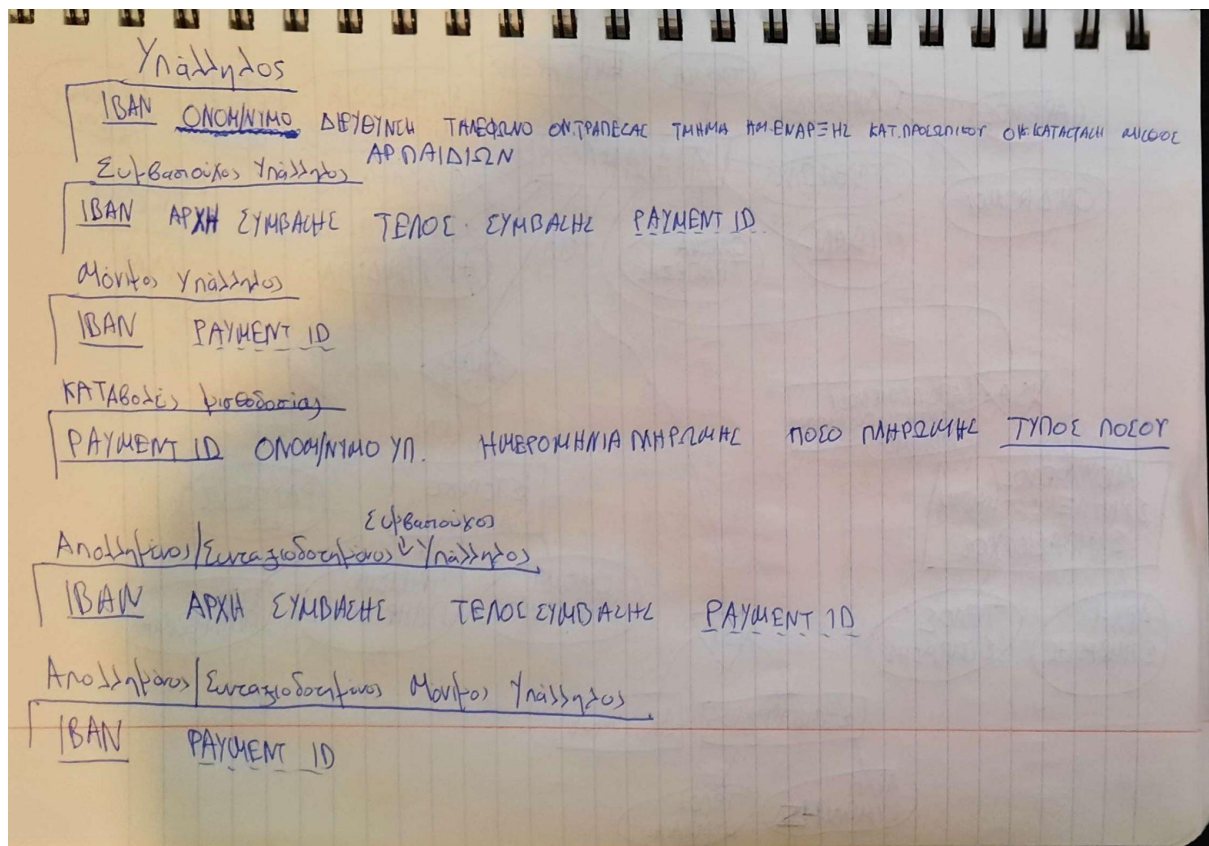 Υπάλληλος
IBAN ΟΝΟΜ/ΝΥΜΟ ΔΙΕΥΘΥΝΣΗ ΤΗΛΕΦΩΝΟ ΟΝ.ΤΡΑΠΕΖΑΣ ΤΜΗΜΑ ΗΜ.ΕΝΑΡΞΗΣ ΚΑΤ.ΠΡΟΣΩΠΙΚΟΥ ΟΙΚ.ΚΑΤΑΣΤΑΣΗ ΜΙΣΘΟΣ
ΑΡ.ΠΑΙΔΙΩΝ
Συμβασιούχος Υπάλληλος
IBAN ΑΡΧΗ ΣΥΜΒΑΣΗΣ ΤΕΛΟΣ ΣΥΜΒΑΣΗΣ PAYMENT ID
Μόνιμος Υπάλληλος
IBAN PAYMENT ID
ΚΑΤΑβολές μισθοδοσίας
PAYMENT ID ΟΝΟΜ/ΝΥΜΟ ΥΠ. ΗΜΕΡΟΜΗΝΙΑ ΠΛΗΡΩΜΗΣ ΠΟΣΟ ΠΛΗΡΩΜΗΣ ΤΥΠΟΣ ΠΟΣΟΥ
Συμβασιούχος
Απολλημένος/Συνταξιοδοτημένος Υπάλληλος
IBAN ΑΡΧΗ ΣΥΜΒΑΣΗΣ ΤΕΛΟΣ ΣΥΜΒΑΣΗΣ PAYMENT ID
Απολλημένος/Συνταξιοδοτημένος Μόνιμος Υπάλληλος
IBAN PAYMENT ID